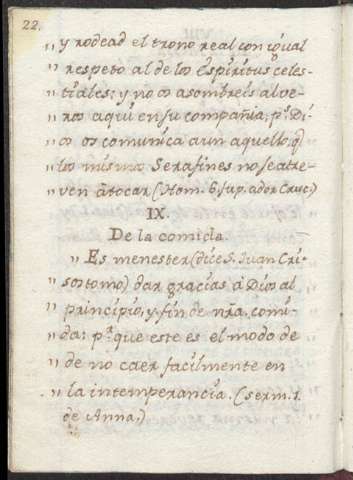 22.
„ y rodead el trono real con igual
„ respeto al de los Espiritus celes-
„ tiales; y no os asombreis al ve-
„ ros aqui en su compañia, pr. Di-
„ os os comunica aun aquello, q
„ los mismos Serafines no se atre-
„ ven à tocar. (Hom. 6. sup. ador. Cruc.)
IX.
De la comida.
„ Es menester (dice S. Juan Cri-
„ sostomo) dar gracias à Dios al
„ principio, y fin de nra. comi-
„ da: pr. que este es el modo de
„ de no caer facilmente en
„ la intemperancia. (serm. 1.
„ de Anna.)